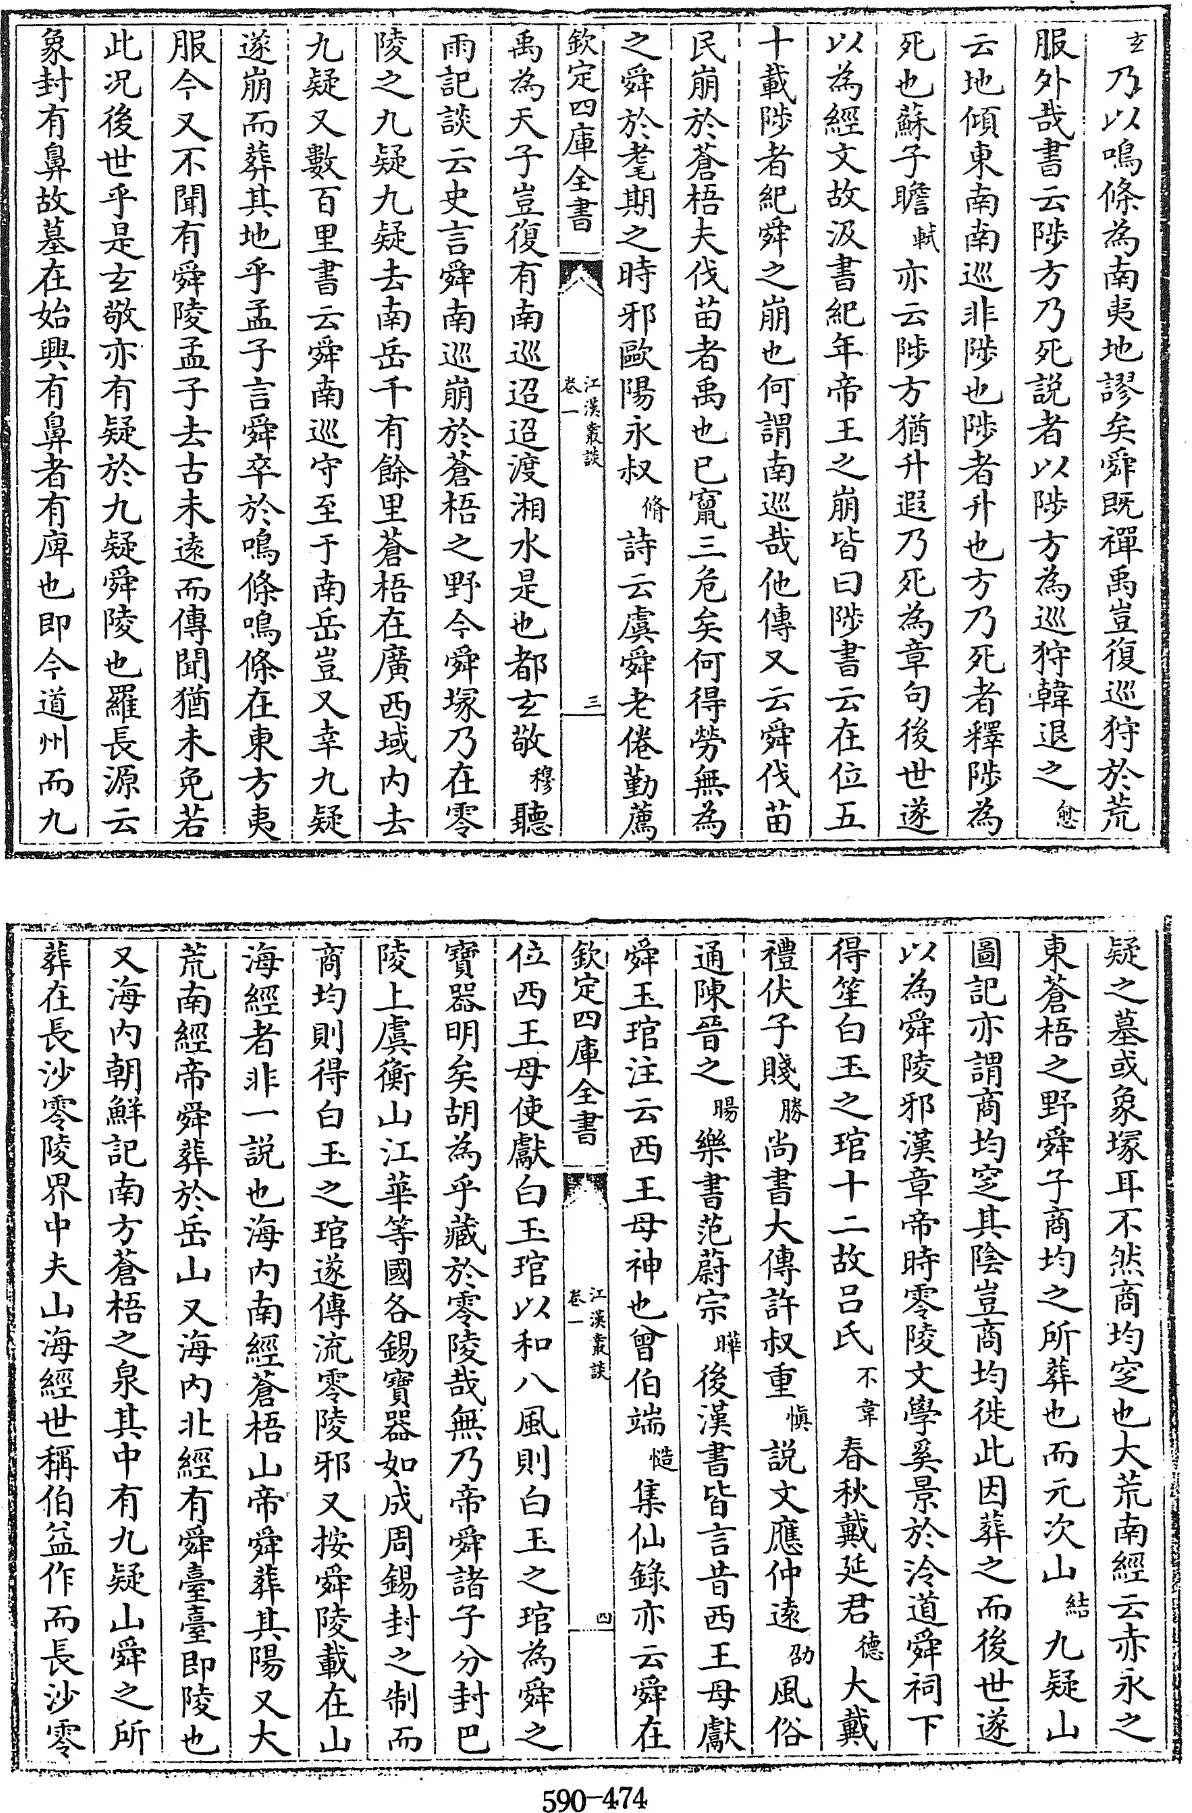 玄乃以鳴條為南夷地謬矣舜既禪禹豈復巡狩於荒
服外哉書云陟方乃死説者以陟方為巡狩韓退之愈
云地傾東南南巡非陟也陟者升也方乃死者釋陟為
死也蘇子瞻軾亦云陟方猶升遐乃死為章句後世遂
以為經文故汲書紀年帝王之崩皆曰陟書云在位五
十載陟者紀舜之崩也何謂南巡哉他傳又云舜伐苗
民崩於蒼梧夫伐苗者禹也已竄三危矣何得勞無為
之舜於耄期之時邪歐陽永叔脩詩云虞舜老倦勤薦
欽定四庫全書
江漢叢談
卷一
三
禹為天子豈復有南巡迢迢渡湘水是也都玄敬穆聽
雨記談云史言舜南巡崩於蒼梧之野今舜塚乃在零
陵之九疑九疑去南岳千有餘里蒼梧在廣西域内去
九疑又數百里書云舜南巡守至于南岳豈又幸九疑
遂崩而葬其地乎孟子言舜卒於鳴條鳴條在東方夷
服今又不聞有舜陵孟子去古未遠而傳聞猶未免若
此况後世乎是玄敬亦有疑於九疑舜陵也羅長源云
象封有鼻故墓在始興有鼻者有庳也即今道州而九
疑之墓或象塚耳不然商均窆也大荒南經云赤水之
東蒼梧之野舜子商均之所葬也而元次山結九疑山
圖記亦謂商均窆其陰豈商均徙此因葬之而後世遂
以為舜陵邪漢章帝時零陵文學奚景於泠道舜祠下
得笙白玉之琯十二故呂氏不韋春秋戴延君德大戴
禮伏子賤勝尚書大傳許叔重慎説文應仲遠劭風俗
通陳晉之暘樂書范蔚宗曄後漢書皆言昔西王母獻
舜玉琯注云西王母神也曾伯端慥集仙錄亦云舜在
欽定四庫全書
江漢叢談
卷一
四
位西王母使獻白玉琯以和八風則白玉之琯為舜之
寶器明矣胡為乎藏於零陵哉無乃帝舜諸子分封巴
陵上虞衡山江華等國各錫寶器如成周錫封之制而
商均則得白玉之琯遂傳流零陵邪又按舜陵載在山
海經者非一説也海内南經蒼梧山帝舜葬其陽又大
荒南經帝舜葬於岳山又海内北經有舜臺臺即陵也
又海内朝鮮記南方蒼梧之泉其中有九疑山舜之所
葬在長沙零陵界中夫山海經世稱伯益作而長沙零
590-474